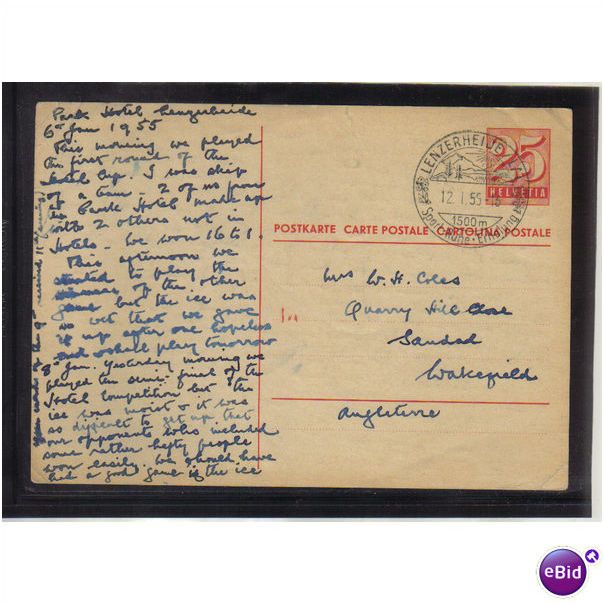 Park Hotel Lenzerheide
6th Jan 1955
This morning we played
the first round of the
Hotel Cup. I was skip
of a team - 2 of us from
Park Hotel made up
with 2 others not in
Hotels - we won 16 to 1.
This afternoon we
started to play the
of the other
game but the ice was
so wet that we gave
it up after one hopeless
end & shall play tomorrow
8th Jan. Yesterday morning we
played the semi-final of the
Hotel Competition but the
ice was moist & it was
so difficult to get up that
our opponents who included
some rather hefty people
won easily. We should have
had a good game if the ice
LENZERHEIDE
12.1.55
1500m
25
HELVETIA
POSTKARTE CARTE POSTALE CARTOLINA POSTALE
Mrs W. H. Coles
Quarry Hill Close
Sandal
Wakefield
Angleterre
eBid